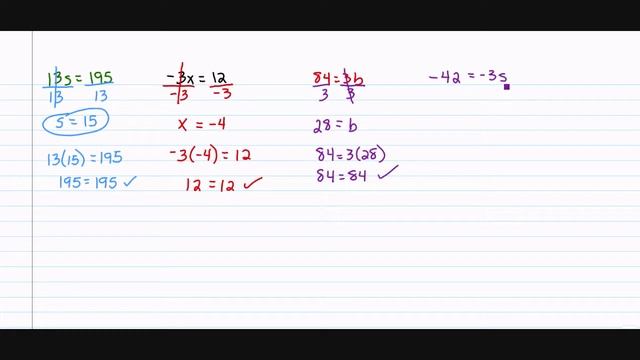 13s = 195
13 13
s = 15
13(15) = 195
195 = 195 ✓
-3x = 12
-3 -3
x = -4
-3(-4) = 12
12 = 12 ✓
84 = 3b
3 3
28 = b
84 = 3(28)
84 = 84 ✓
-42 = -3s